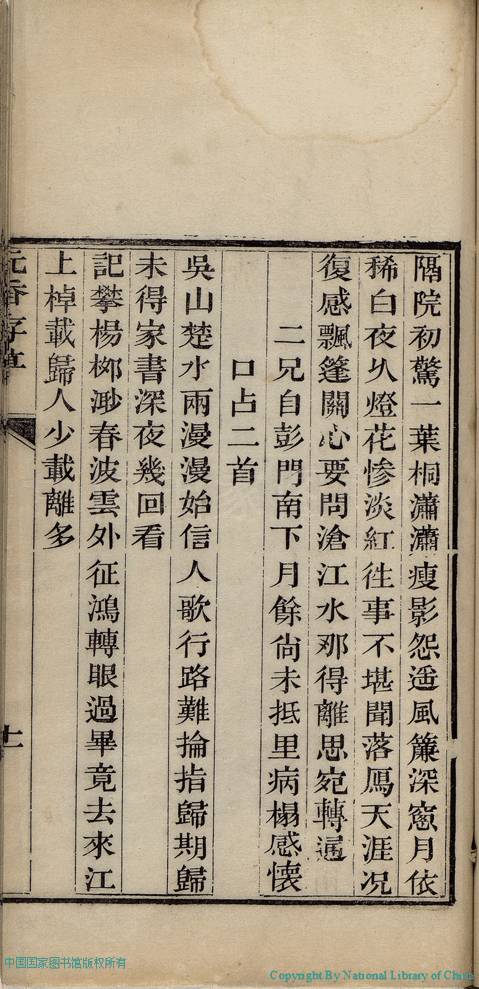 隔院初驚一葉桐瀟瀟瘦影怨遥風簾深窻月依
稀白夜久燈花慘淡紅徃事不堪聞落鴈天涯况
復感飄篷關心要問滄江水那得離思宛轉通
二兄自彭門南下月餘尙未抵里病榻感懷
口占二首
吳山楚水兩漫漫始信人歌行路難掄指歸期歸
未得家書深夜幾回看
記攀楊栁渺春波雲外征鴻轉眼過畢竟去來江
上棹載歸人少載離多
十一
中国国家图书馆版权所有
Copyright By National Library of China